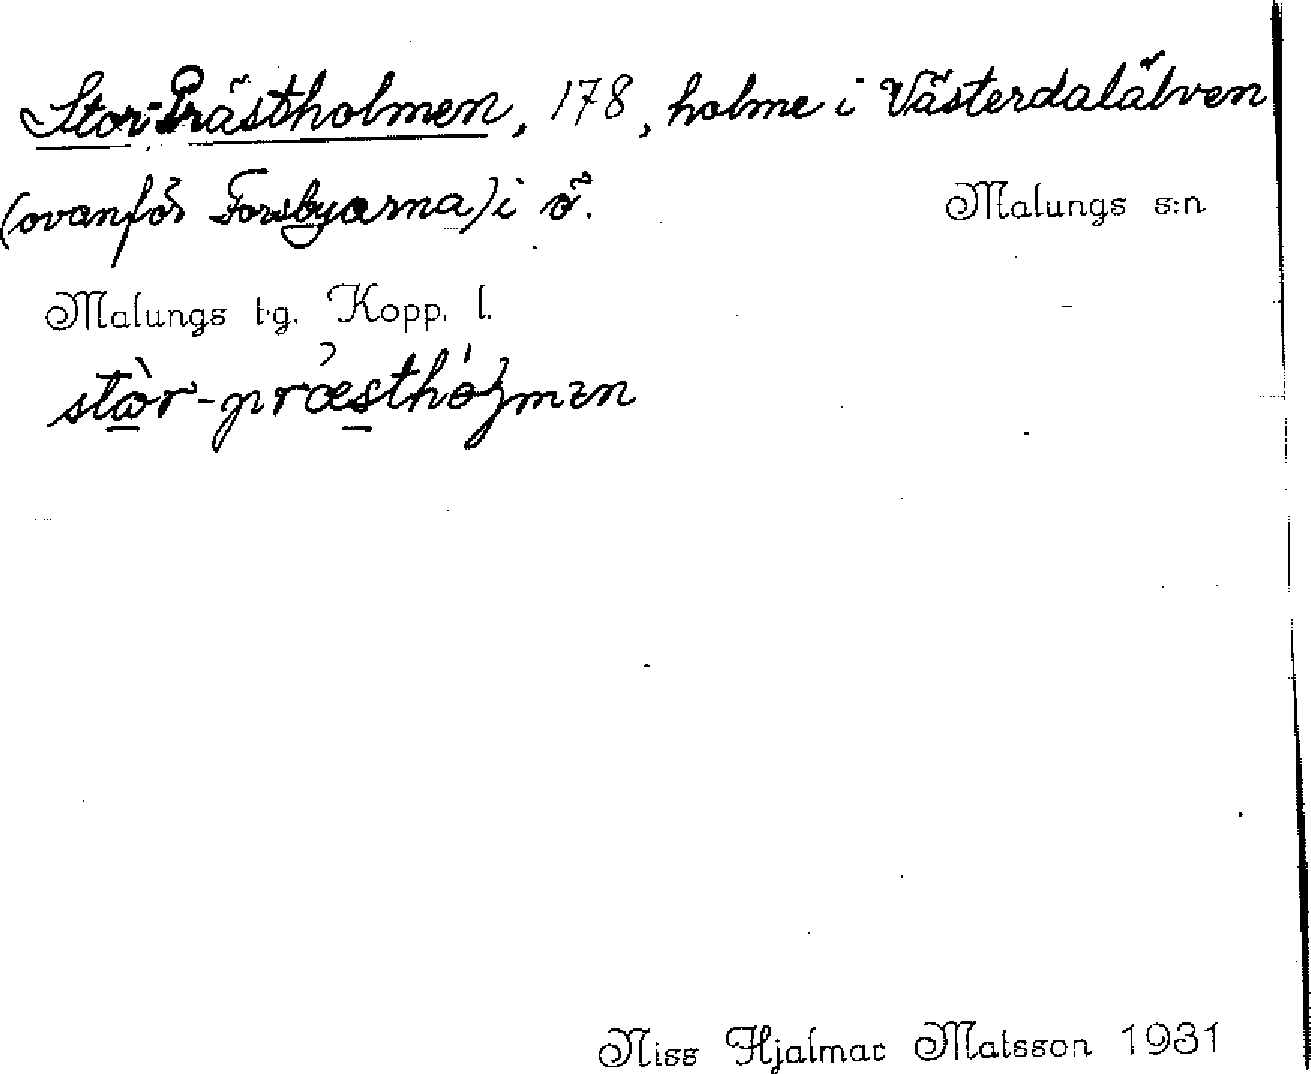 Stor-Prästholmen, 178, holme i Västerdalälven
(ovanför Forsbyarna) i ö. Malungs s:n
Malungs tg. Kopp. l.
stòr-præsthólmen
Niss Hjalmar Matsson 1931